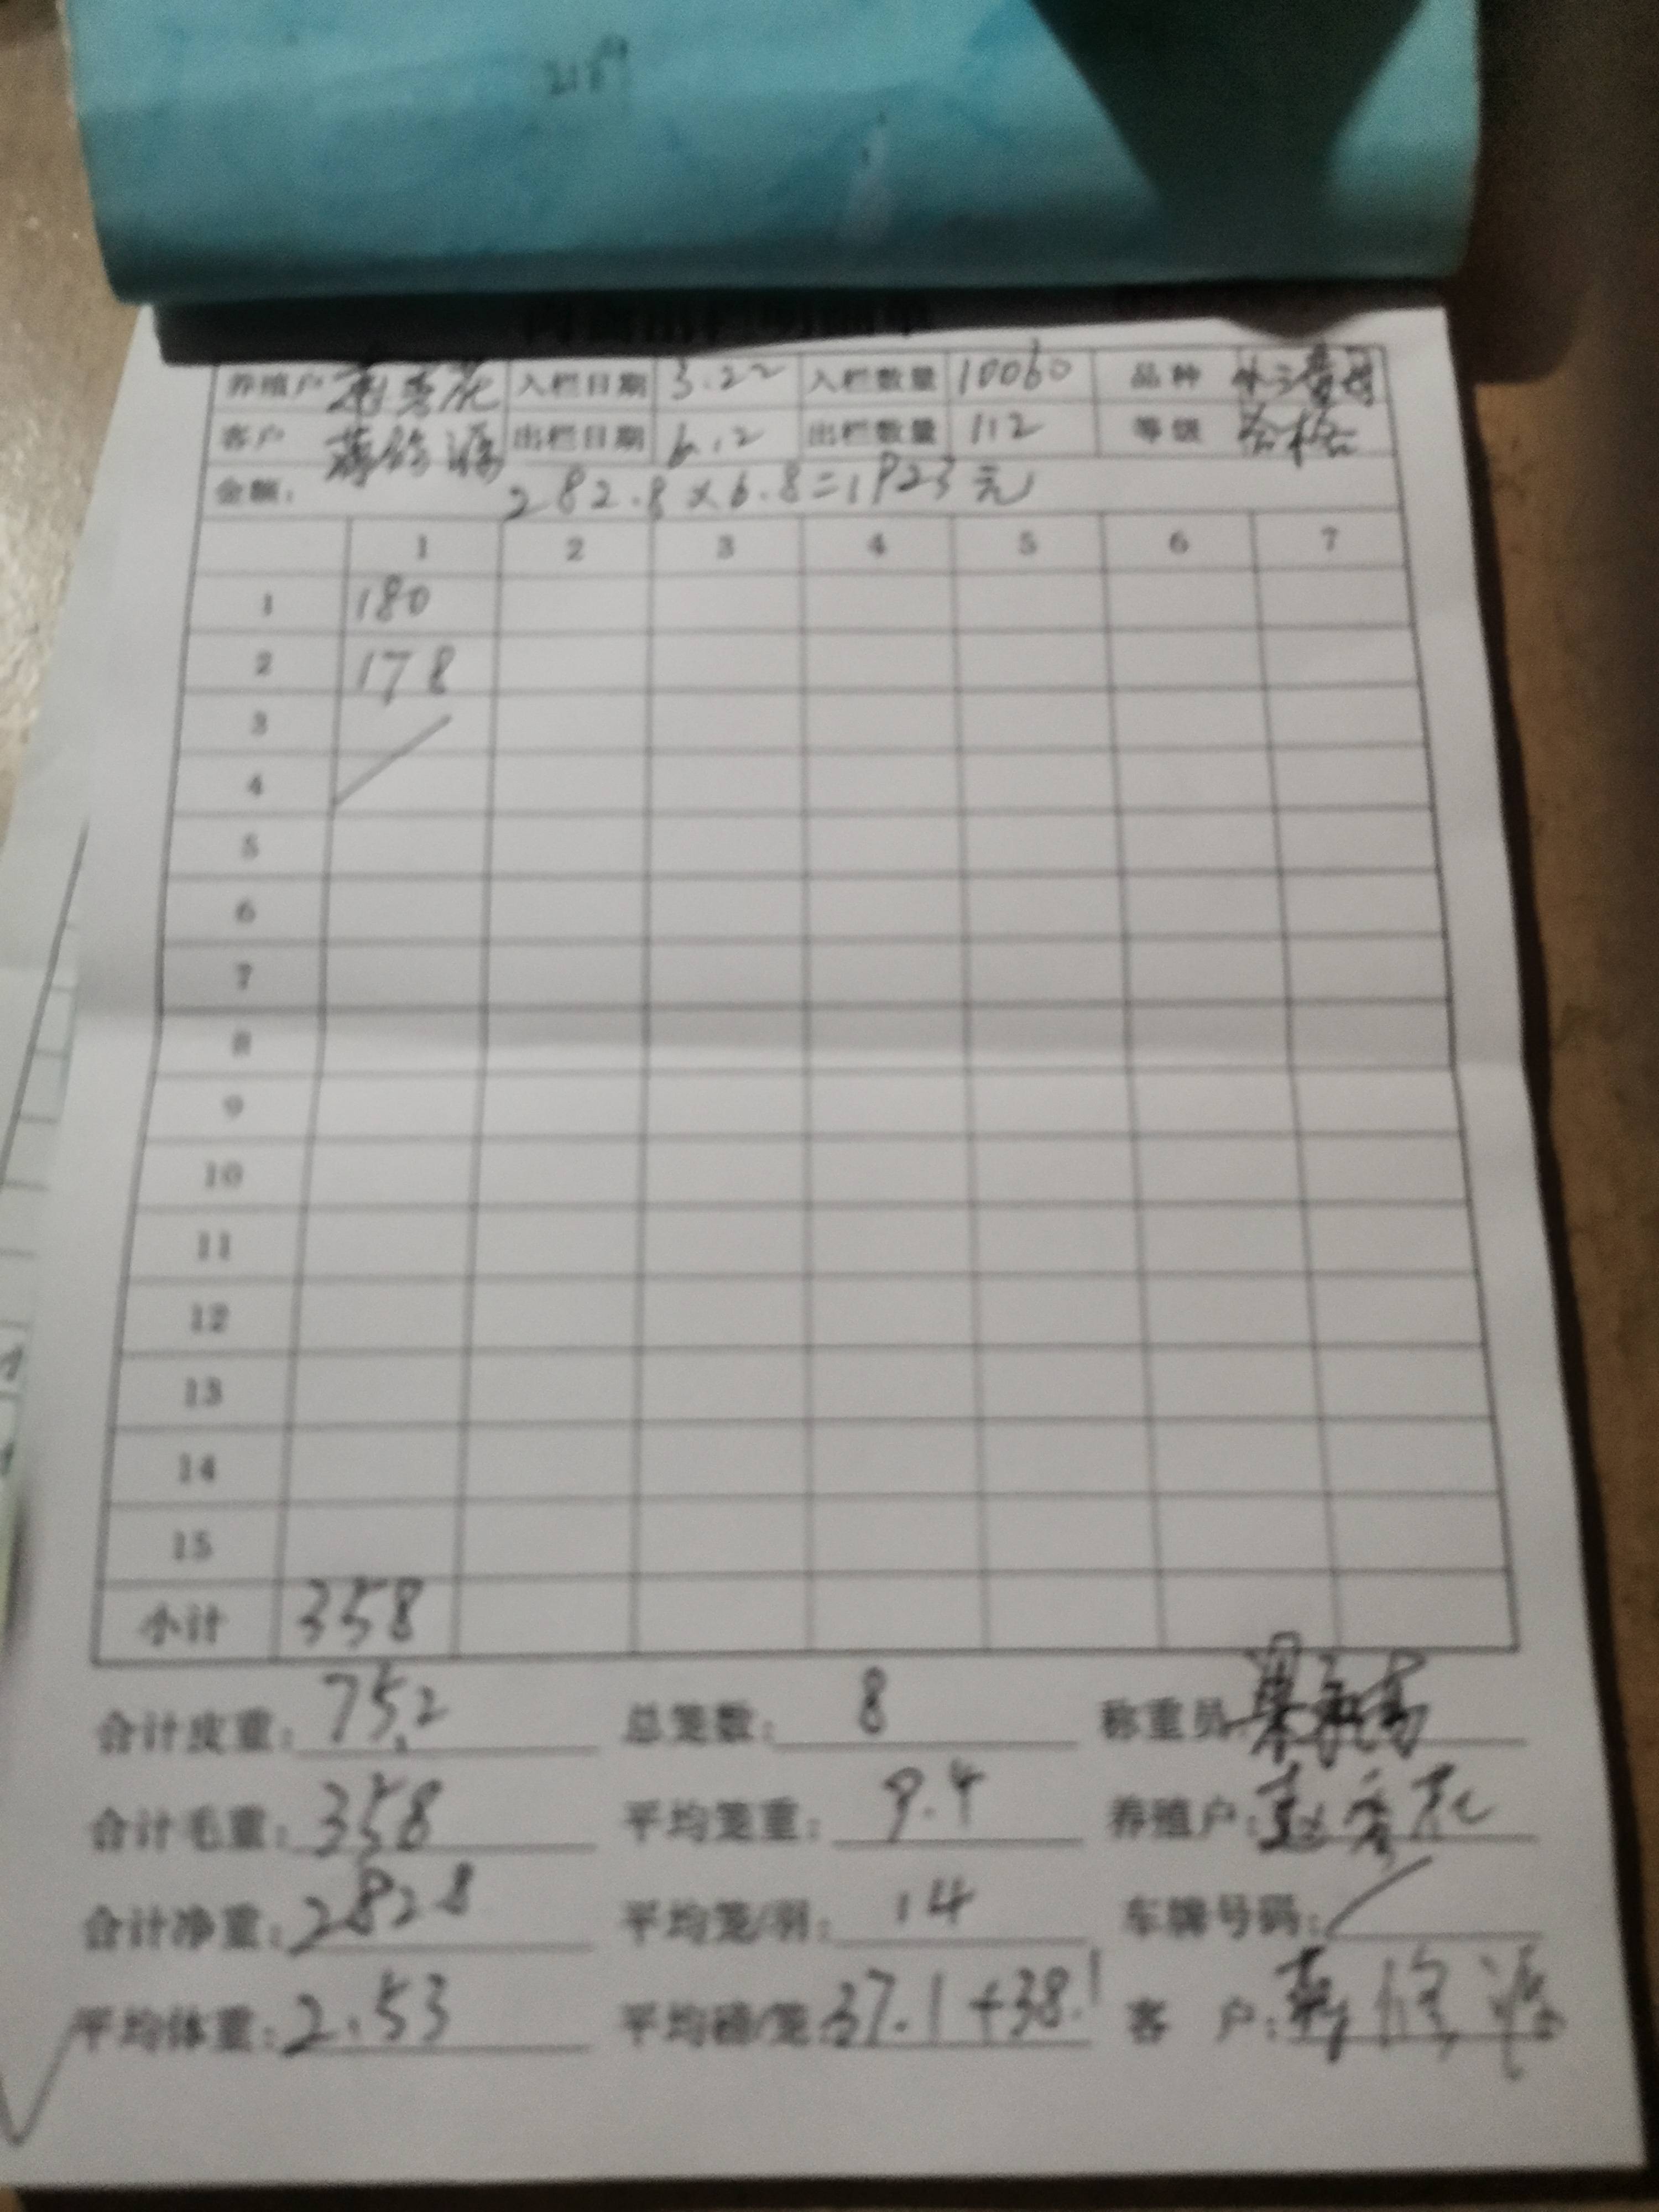 养殖户 入栏日期 3.22 入栏数量 10060 品种
客户 出栏日期 6.12 出栏数量 112 等级 合格
金额: 282.8×6.8=1923元
1 2 3 4 5 6 7
1 180
2 178
3
4
5
6
7
8
9
10
11
12
13
14
15
小计 358
合计皮重: 75.2 总笼数: 8 称重员
合计毛重: 358 平均笼重: 9.4 养殖户:
合计净重: 282.8 平均笼/羽: 14 车牌号码:
平均体重: 2.53 平均磅/笼: 37.1+38.1 客 户: